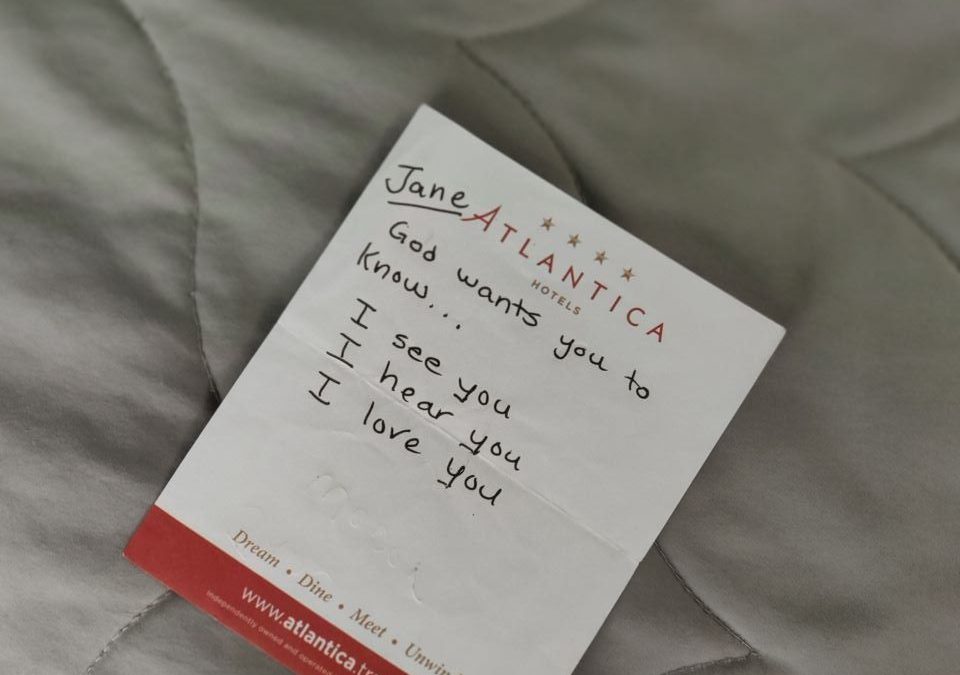 Jane
ATLANTICA
HOTELS
God wants you to
Know...
I see you
I hear you
I love you
Dream • Dine • Meet •
www.atlantica.
independently owned and operated